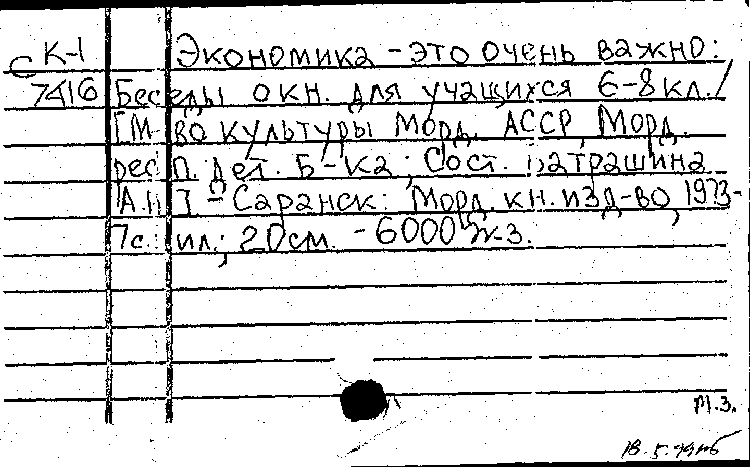 К-1 Экономика – это очень важно:
С 7416 Беседы о кн. для учащихся 6-8 кл. /
М-во культуры Морд. АССР, Морд.
респ. дет. б-ка; Сост.
Саранск: Морд. кн. изд-во, 1973 –
7с.: ил.; 20 см. – 6000 экз.
М.З.